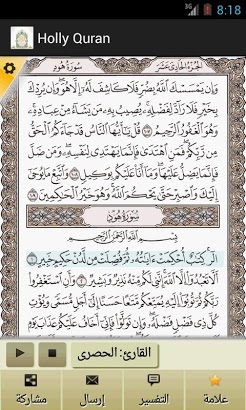 3G 8:18
Holly Quran
الجزء الحادي عشر سورة هود
وَإِن يَمْسَسْكَ اللَّهُ بِضُرٍّ فَلَا كَاشِفَ لَهُ إِلَّا هُوَ وَإِن يُرِدْكَ
بِخَيْرٍ فَلَا رَادَّ لِفَضْلِهِ يُصِيبُ بِهِ مَن يَشَاءُ مِنْ عِبَادِهِ
وَهُوَ الْغَفُورُ الرَّحِيمُ ١٠٧ قُلْ يَا أَيُّهَا النَّاسُ قَدْ جَاءَكُمُ الْحَقُّ
مِن رَّبِّكُمْ فَمَنِ اهْتَدَى فَإِنَّمَا يَهْتَدِي لِنَفْسِهِ وَمَن ضَلَّ
فَإِنَّمَا يَضِلُّ عَلَيْهَا وَمَا أَنَا عَلَيْكُم بِوَكِيلٍ ١٠٨ وَاتَّبِعْ مَا يُوحَى
إِلَيْكَ وَاصْبِرْ حَتَّى يَحْكُمَ اللَّهُ وَهُوَ خَيْرُ الْحَاكِمِينَ ١٠٩
سورة هود
بِسْمِ اللَّهِ الرَّحْمَنِ الرَّحِيمِ
الر كِتَابٌ أُحْكِمَتْ آيَاتُهُ ثُمَّ فُصِّلَتْ مِن لَّدُنْ حَكِيمٍ خَبِيرٍ ١
أَلَّا تَعْبُدُوا إِلَّا اللَّهَ إِنَّنِي لَكُم مِّنْهُ نَذِيرٌ وَبَشِيرٌ ٢ وَأَنِ اسْتَغْفِرُوا
رَبَّكُمْ ثُمَّ تُوبُوا إِلَيْهِ يُمَتِّعْكُم مَّتَاعًا حَسَنًا إِلَى أَجَلٍ مُّسَمًّى
وَيُؤْتِ كُلَّ ذِي فَضْلٍ فَضْلَهُ وَإِن تَوَلَّوْا فَإِنِّي أَخَافُ عَلَيْكُمْ عَذَابَ
القارئ: الحصرى
علامة التفسير إرسال مشاركة